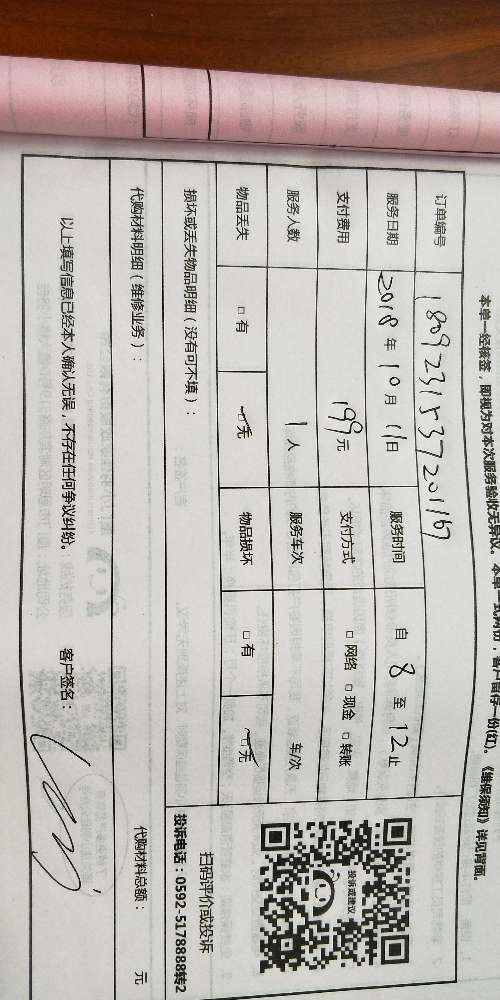 本单一经核签，即视为对本次服务验收无异议。本单一式两份，客户留存一份(红)。《维保须知》详见背面。
订单编号 180923153720116
服务日期 2018 年 10 月 11 日 服务时间 自 8 至 12 止
支付费用 199 元 支付方式 □ 网络 □ 现金 □ 转账
服务人数 1 人 服务车次 车/次
物品丢失 □ 有 □ 无 物品损坏 □ 有 □ 无
投诉或建议
扫码评价或投诉
投诉电话：0592-5178888转2
损坏或丢失物品明细（没有可不填）：
代购材料明细（维修业务）： 代购材料总额： 元
以上填写信息已经本人确认无误，不存在任何争议纠纷。 客户签名：